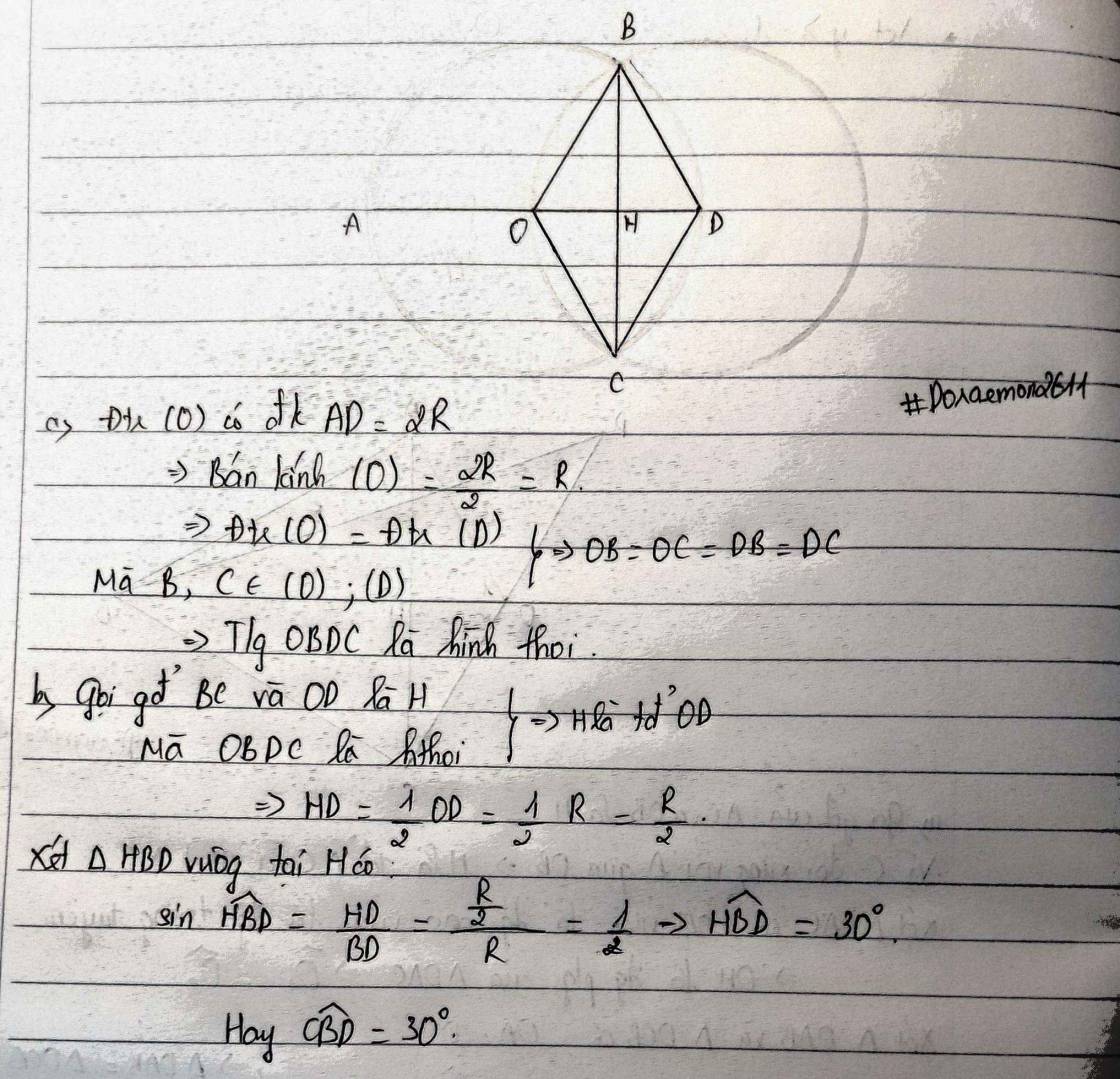 B
A
O
H
D
C
#Doraemon2611
a, Đtr (O) có đk AD = 2R
=> Bán kính (O) = 2R/2 = R.
=> Đtr (O) = Đtr (D)
Mà B, C ∈ (O) ; (D)
} => OB = OC = DB = DC
=> T/g OBDC là hình thoi.
b, Gọi gđ' BC và OD là H
Mà OBDC là hthoi
} => H là tđ' OD
=> HD = 1/2 OD = 1/2 R = R/2.
Xét Δ HBD vuông tại H có:
sin HBD = HD/BD = R/2 / R = 1/2 => HBD = 30°.
Hay CBD = 30°.